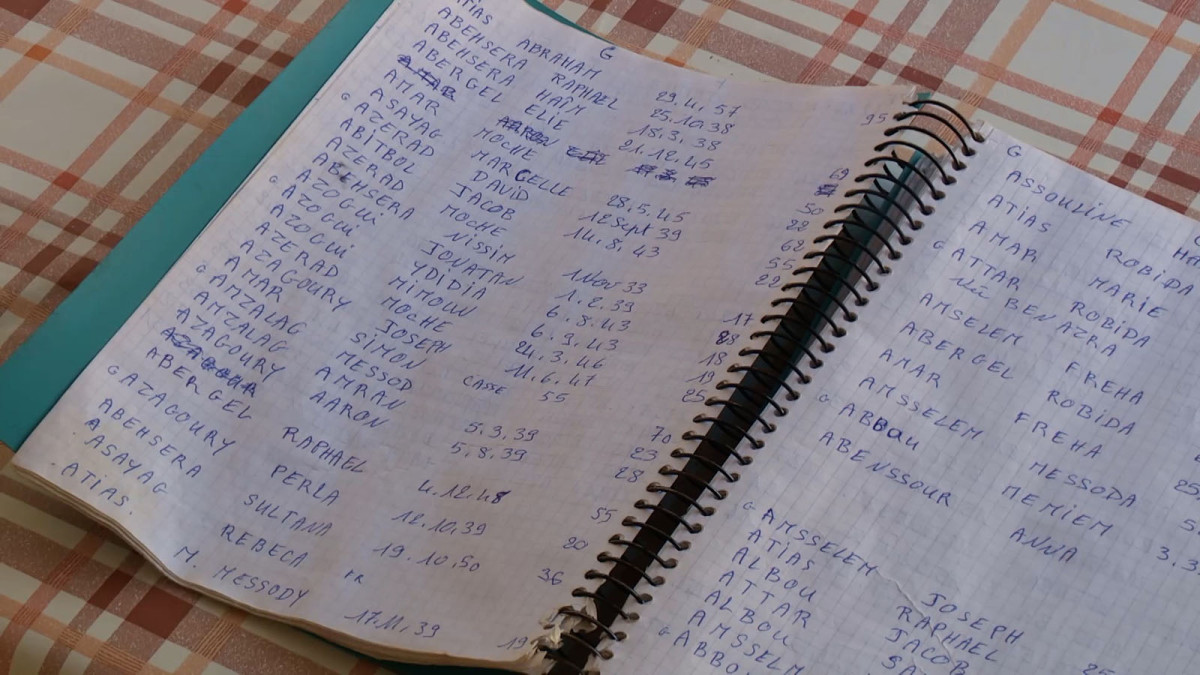 ATIAS ABRAHAM 29.4.57 95
G
ABEHSERA RAPHAEL 25.10.38
ABEHSERA HAÏM 18.3.38
ABERGEL ELIE 21.12.45
AMAR AARON
AMAR MOCHE 69
ASAYAG MARCELLE 28.5.45 50
G AZERAD DAVID 12 Sept 39 22
ABITBOL JACOB 14.8.43 62
AZERAD MOCHE 55
ABEHSERA NISSIM 1 Nov 33 22
G AZOGUI JONATAN 1.2.39 17
AZOGUI YDIDIA 6.8.43 28
AZOGUI MIMOUN 6.9.43 18
AZERAD MOCHE 24.3.46 19
AZAGOURY JOSEPH 11.6.47 25
G AMAR SIMON CASSE 55
AMZALAG MESSOD 70
AMZALAG AMRAN 5.3.39 23
AZAGOURY AARON 5.8.39 28
AZAGOUR
ABERGEL RAPHAEL 4.12.48 55
G AZAGOURY PERLA 12.10.39 20
ABEHSERA SULTANA 19.10.50 36
ASAYAG REBECA
. ATIAS. M. MESSODY 17.11.39 19
G
ASSOULINE
ATIAS ROBIDA
AMAR MARIE
G ATTAR ROBIDA
BEN AZRA
AMSELEM FREHA
ABERGEL ROBIDA
AMAR FREHA
AMSSELEM MESSODA 25
G ABBOU MEMIEM 5.
ABENSSOUR ANNA 3.3
G AMSSELEM JOSEPH
ATIAS RAPHAEL
ALBOU JACOB
ATTAR
ALBOU
AMSSELM
G ABBO